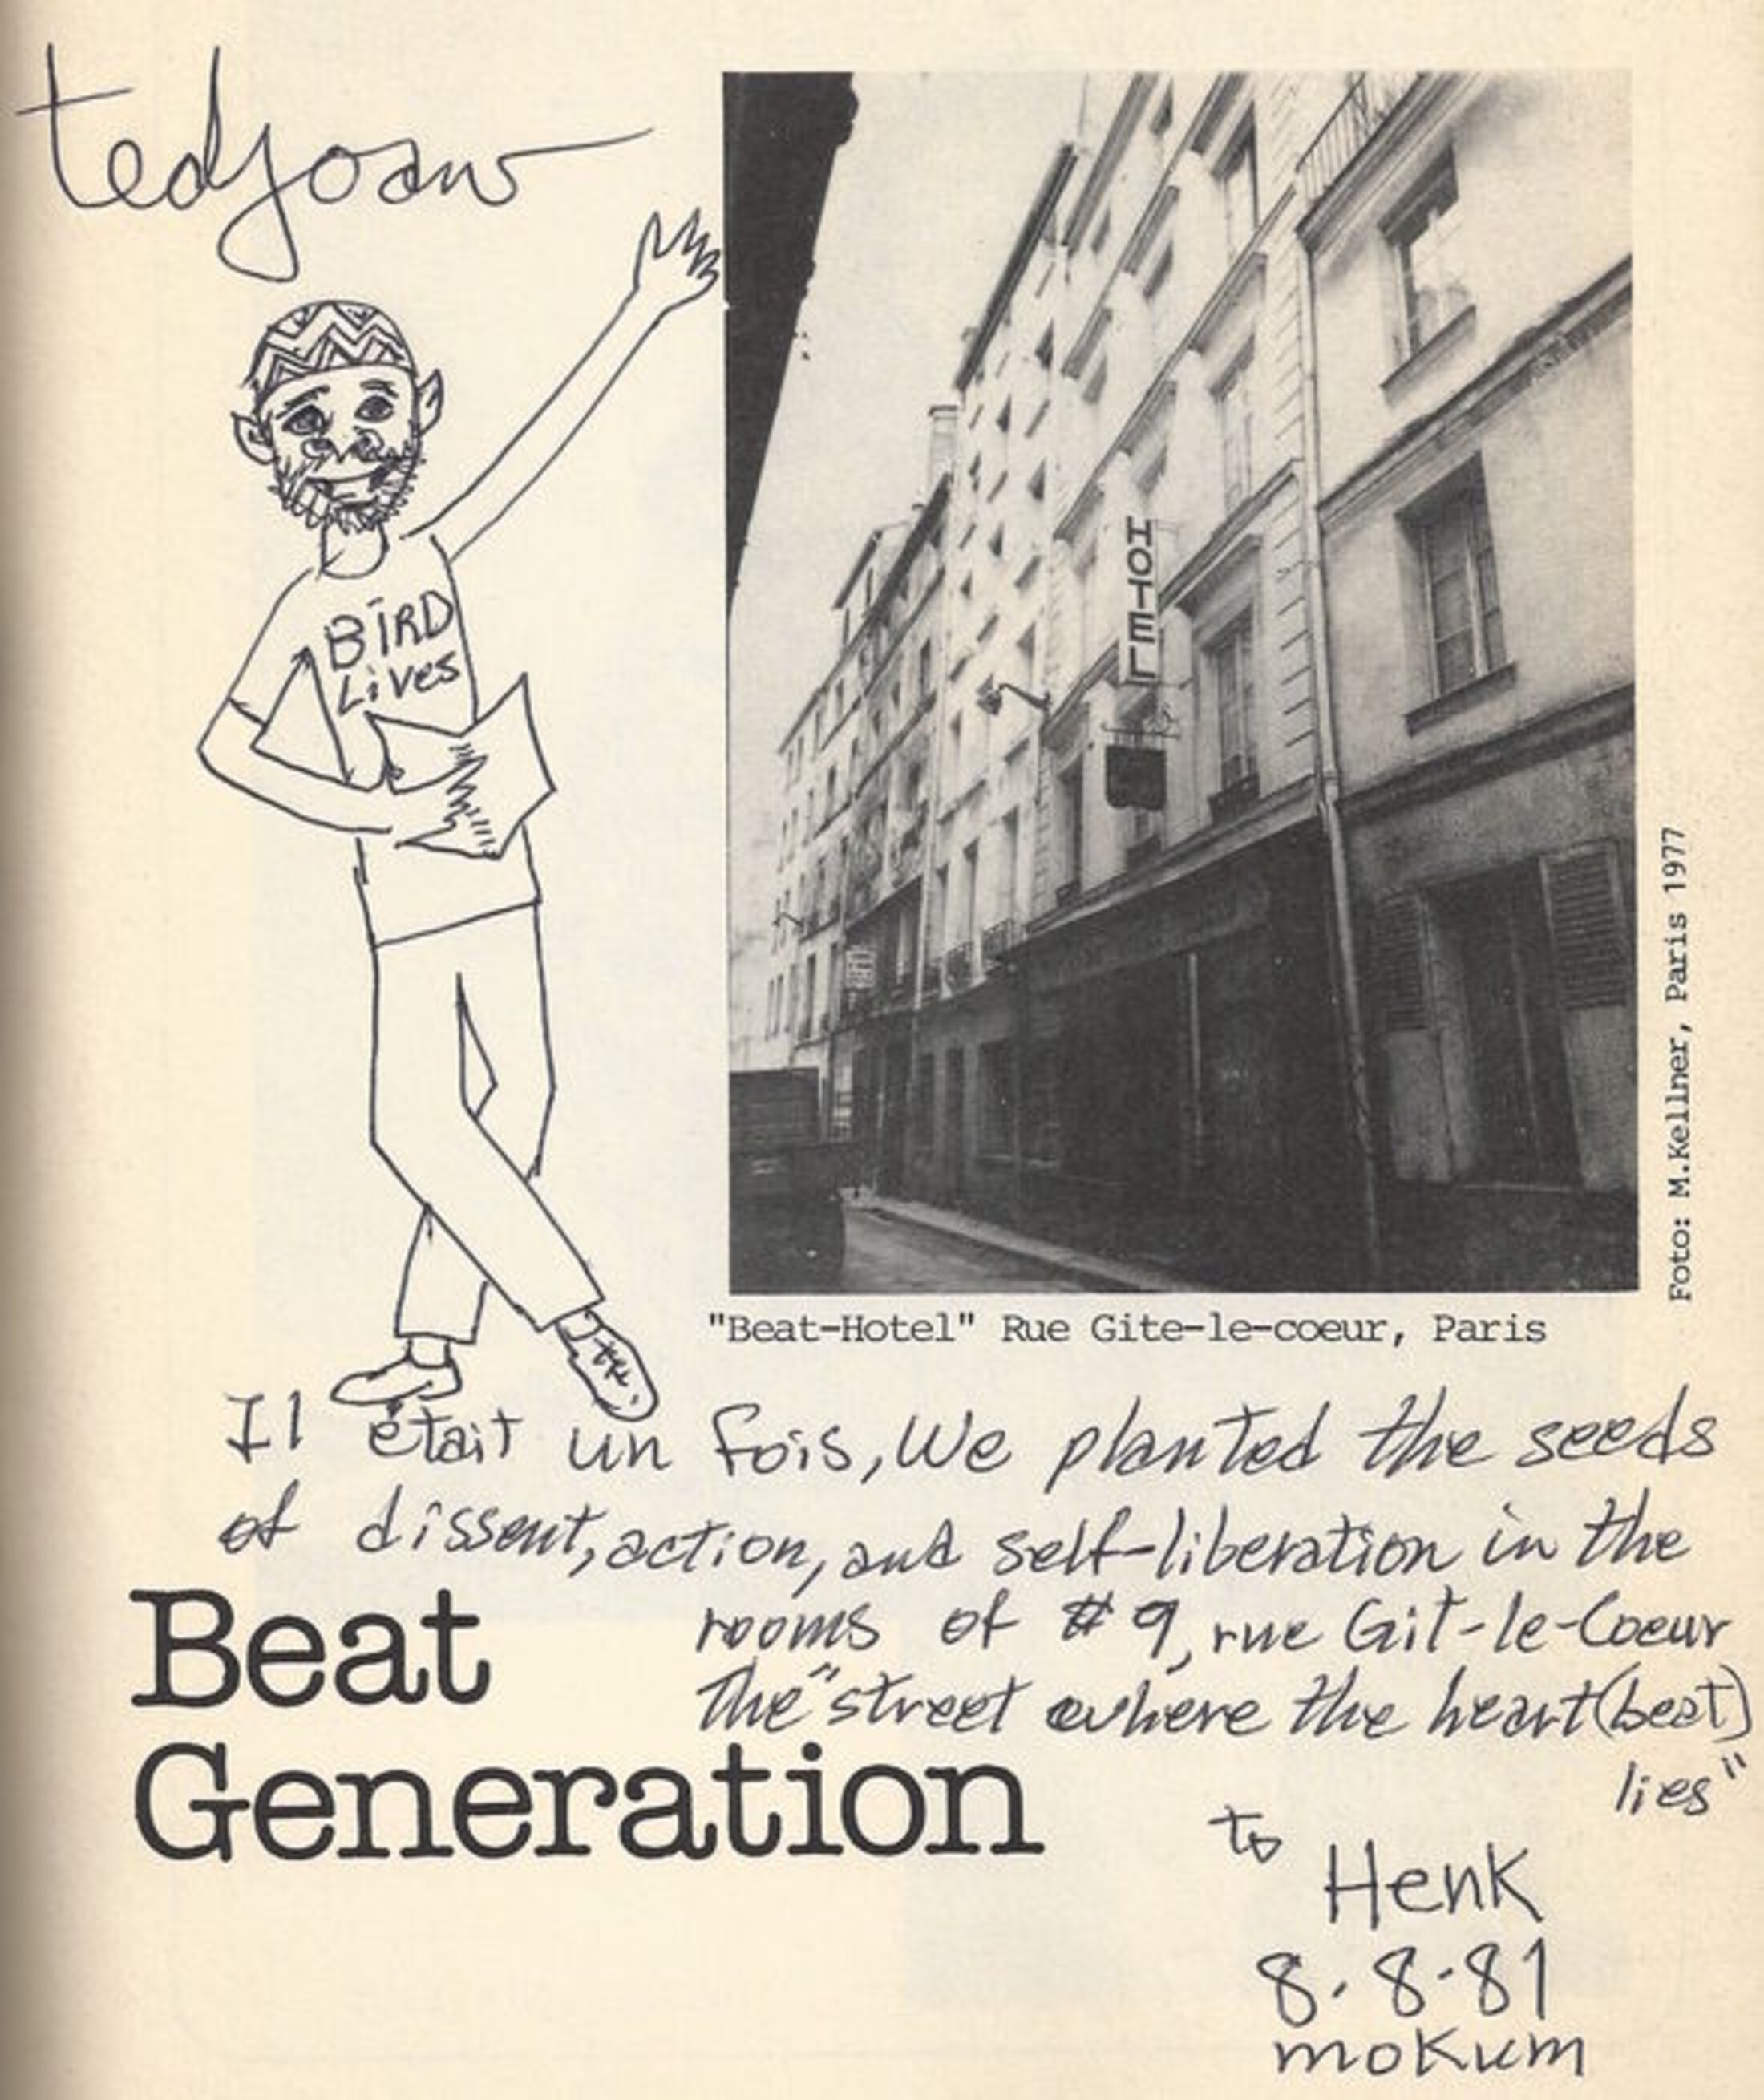 tedjoans
BIRD
Lives
HOTEL
Foto: M.Kellner, Paris 1977
"Beat-Hotel" Rue Gite-le-coeur, Paris
Il était un fois, We planted the seeds
of dissent, action, and self-liberation in the
rooms of #9, rue Git-le-Coeur
The "street where the heart(beat)
lies"
Beat
Generation
to Henk
8.8.81
moKum